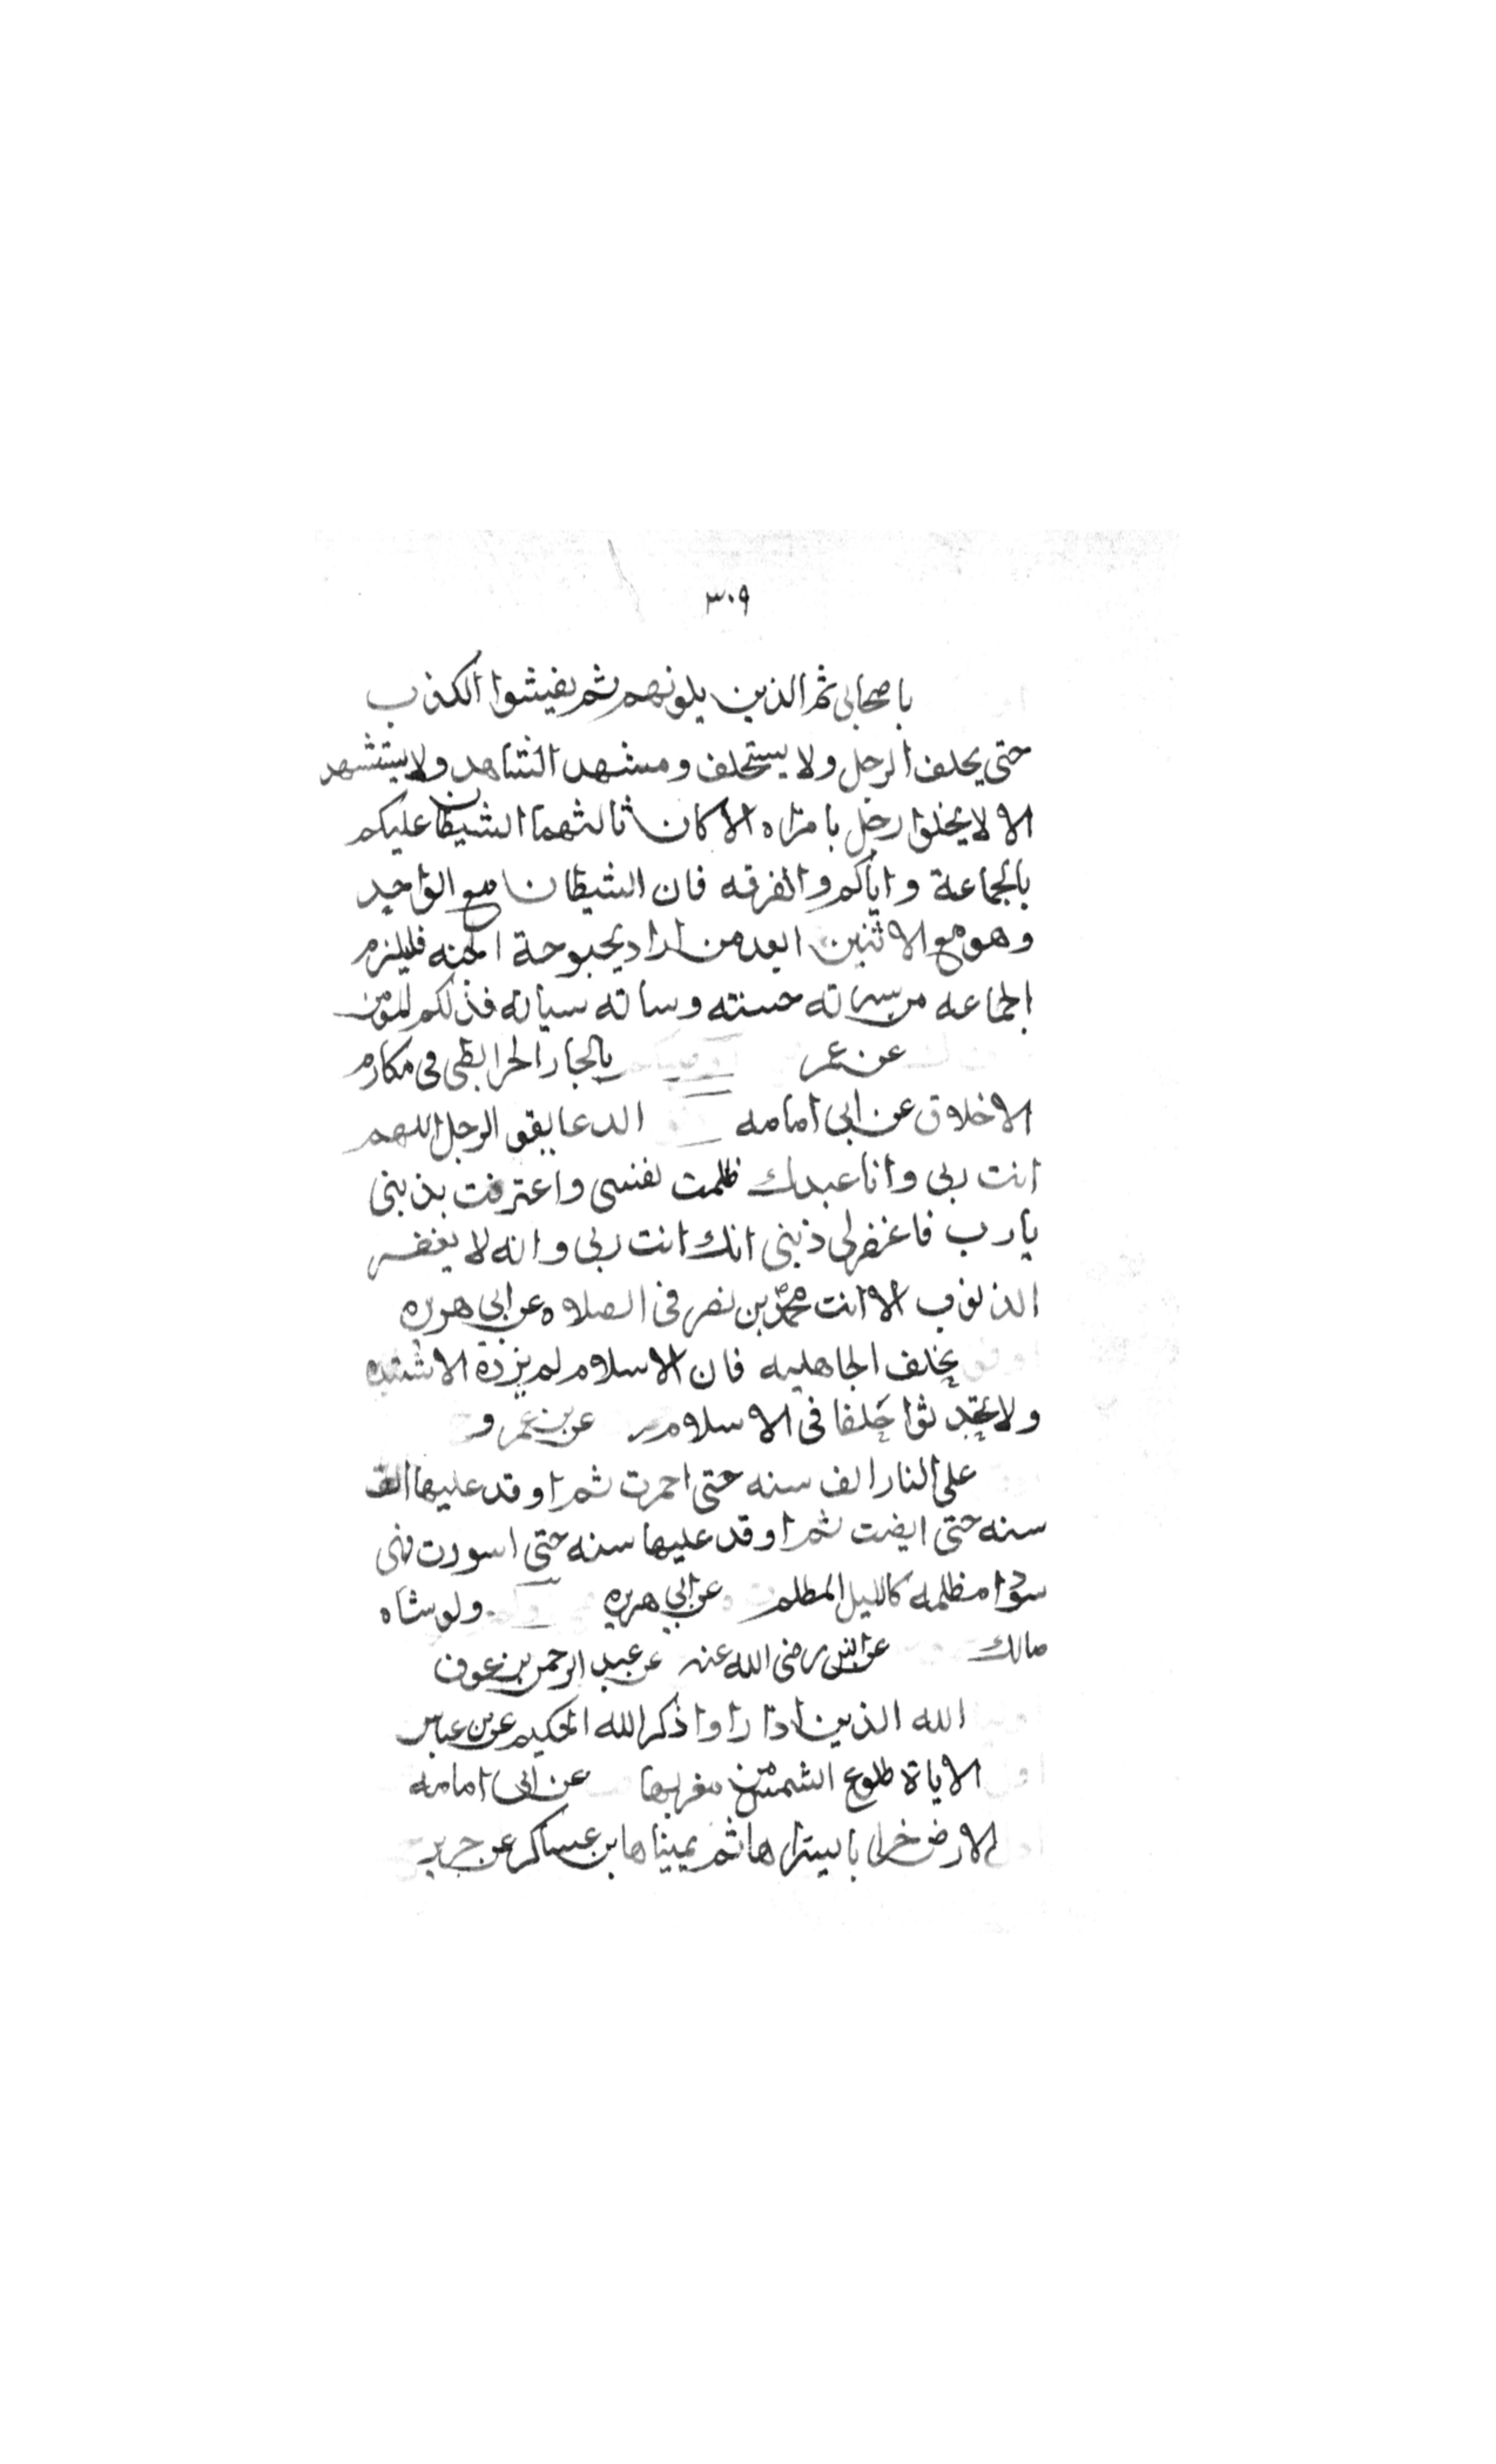 ٣٠٩
باصحابى ثم الذين يلونهم ثم يفشوا الكذب
حتى يحلف الرجل ولا يستحلف ومشهد الشاهد ولا يستشهد
الا لا يخلوا رجل بامراه الا كان ثالثهما الشيطان عليكم
بالجماعة واياكم والفرقه فان الشيطان مع الواحد
وهو مع الاثنين ابعد من اراد بحبوحة الجنه فليلزم
الجماعه من سراته حسنته وساته سياته فذلكم المؤمن
عن عمر بالجار الخرايطى فى مكارم
الاخلاق عن ابى امامه الدعا يقو الرجل اللهم
انت ربى وانا عبدك ظلمت نفسى واعترفت بذنبى
يارب فاغفرلى ذنبى انك انت ربى وانه لا يغفر
الذنوب الا انت محمد بن نصر فى الصلاه عن ابى هريره
بحلف الجاهليه فان الاسلام لم يزده الا شده
ولا تحدثوا حلفا فى الاسلام عن بن عمرو
على النار الف سنه حتى احمرت ثم اوقد عليها الف
سنه حتى ابيضت ثم اوقد عليها سنه حتى اسودت فهى
سودا مظلمه كالليل المظلم عن ابى هريره ولو بشاه
مالك عن انس رضى الله عنه عن عبد الرحمن بن عوف
الله الذين اذا راوا ذكر الله الحكيم عن بن عباس
الاياة طلوع الشمس من مغربها عن ابى امامه
الارض خرابا يسراها ثم يميناها بن عساكر عن جرير